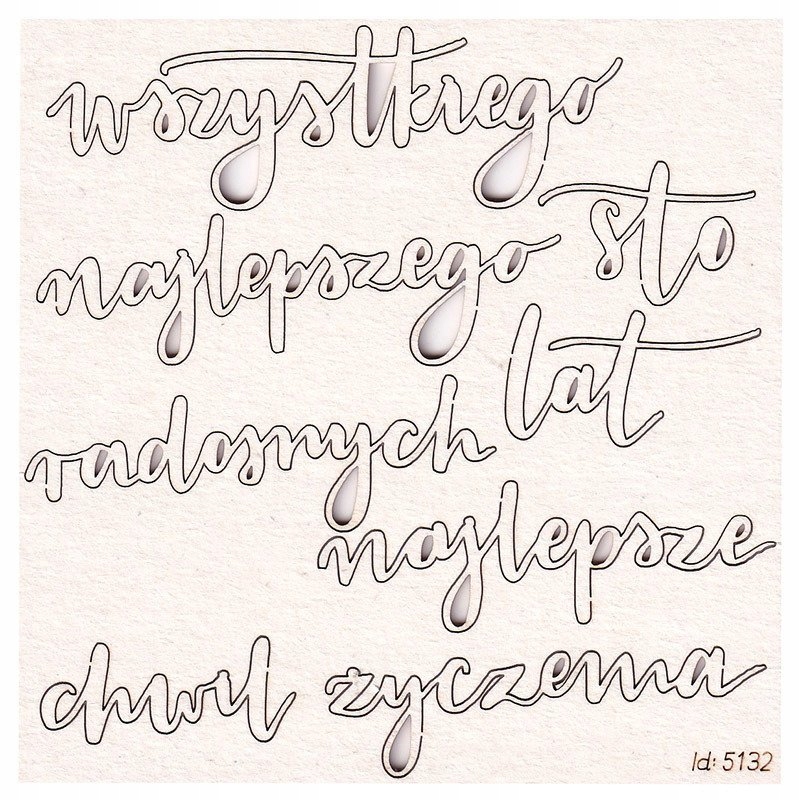 wszystkiego
najlepszego
sto
lat
radosnych
chwil
najlepsze
życzenia
Id: 5132